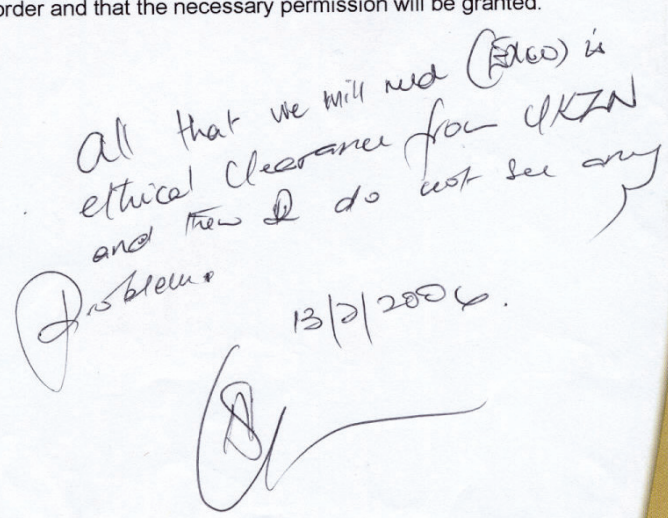 order and that the necessary permission will be granted.
All that we will need (EXCO) is
ethical clearance from UKZN
and then I do not see any
problem.
13/2/2006.